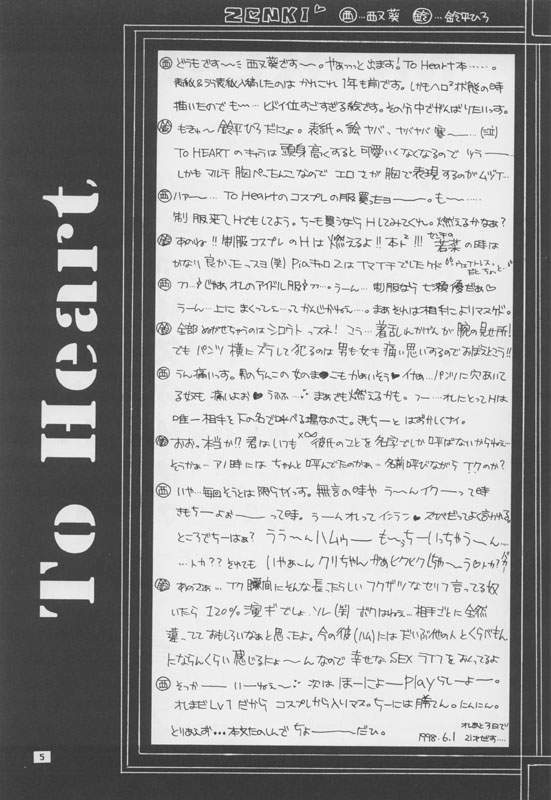 ZENKI♡ 西…西又葵 鈴…鈴平ひろ
To Heart,
西 どうもです〜ミ 西又葵です〜。やぁっっと出ます!To Heart本……。
表紙&うら表紙入稿したのは かれこれ 1年も前です。しかもヘロ²状態の時
描いたのでも〜…ヒドイ位すごすぎる絵です。その分中でがんばりたいっす。
鈴 もきゅ〜 鈴平ひろだにょ。表紙の絵ヤバ、ヤバヤバ 寒〜…(泣)
To HEARTのキャラは 頭身高くすると可愛いくなくなるので ツラ——
しかもマルチ 胸ぺったんこなので エロさが胸で表現するのがムヅイ…
西 ハァ〜… To Heartのコスプレの服買ったヨ——。も〜……
制服来てHでもしてよう。ちーも買うならHしてみてくれ。燃えるかなぁ?
鈴 あのね!!制服コスプレのHは燃えるよ!!本ト²!!! 若菜の時は
かなり良かったっスヨ(笑)Piaキャロ2はイマイチでしたケド
西 じゃあオレのアイドル服 …うーん…制服なら七瀬優だぁ♡
うーん…上にまくって…ってかんじかねぇ…。まぁそれは相手によりマスケド。
鈴 全部ぬがせちゃうのはシロウトっスネ!コラ…着乱れかげんが腕の見せ所!
でもパンツ横にズラして犯るのは男も女も痛い思いするのでおぼえとう!!
西 うん痛いっす。男のちんこの 女のま●こもかわいそう♥ イヤぁ…パンツに穴あいて
るヤツも痛いよお♥ うふふ…まぁさも燃えるかも。
唯一相手を下の名で呼べる場なのさ。きもちーとはずかしくナイ。
鈴 おお、本当か!?君はいつも 彼氏のことを名字でしか呼ばないからねぇ…
そうかぁ…アノ時にはちゃんと呼んでたのかぁ…名前呼びながらイクのか?
西 いや…毎回そうとは限らナイっす。無言の時や うーんイクーって時
きもちーよぉ——って時。うーんオレってインラン♥
ところでちーはぁ? ララ〜ん ハムゥ〜 も〜っちーいっちゃうーん…
鈴 あのさぁ…イク瞬間にそんな長ったらしいフクザツなセリフ言ってる奴
いたら120%演ギでしょ、ソレ(笑)ボクはねぇ…相手ごとに全然
違ってて おもしろいなぁと思ったよ。今の彼(ハム)にはだいぶ他の人とくらべもん
にならんくらい感じるにょ〜んなので 幸せなSEXライフをおくってるよ
西 そっか—— いーねぇ〜 次は ほーにょ—Playらしょー。
オレまだLv1だからコスプレから入りマス。ちーには勝てん。にんにん。
とりあえず…本文たのしんでちょ——だひ。
1998.6.1
5